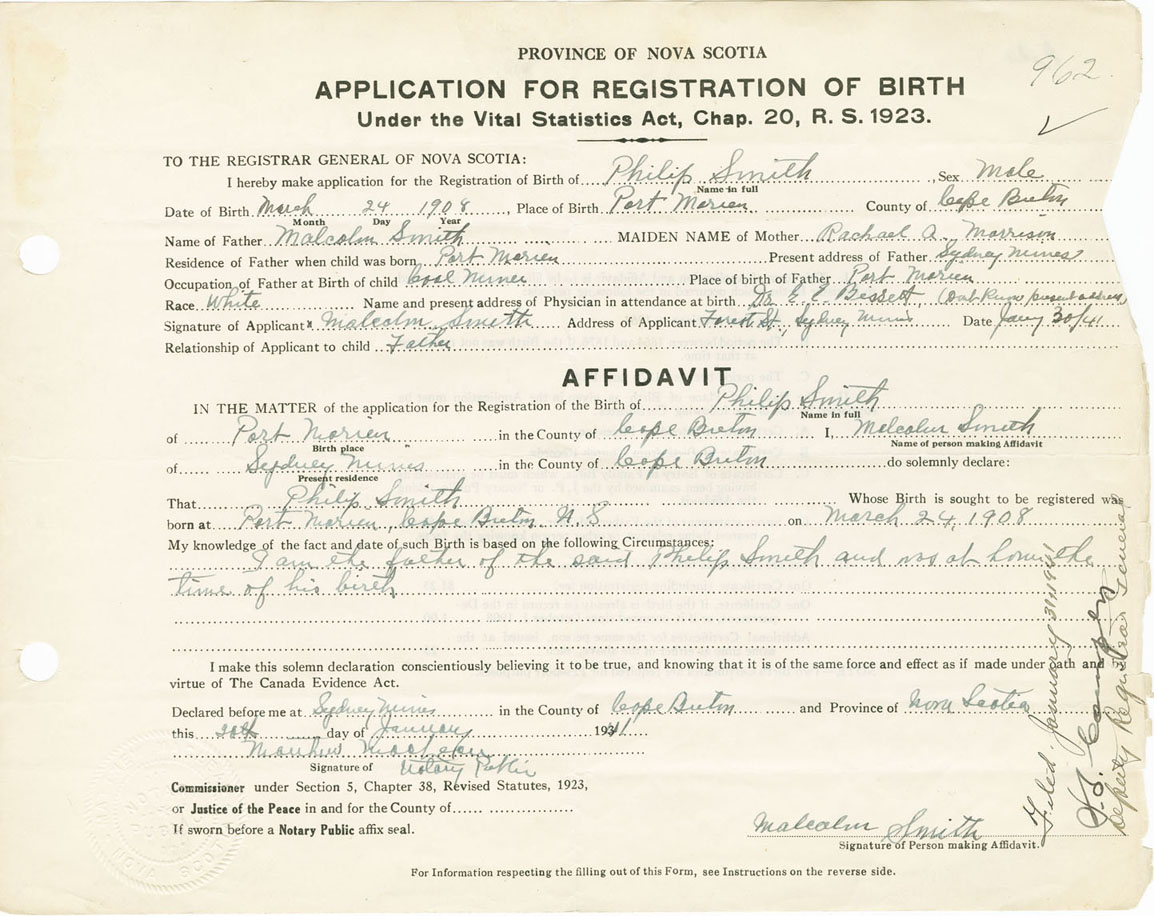 PROVINCE OF NOVA SCOTIA
962
APPLICATION FOR REGISTRATION OF BIRTH
Under the Vital Statistics Act, Chap. 20, R. S. 1923.
TO THE REGISTRAR GENERAL OF NOVA SCOTIA:
I hereby make application for the Registration of Birth of Philip Smith , Sex Male
Name in full
Date of Birth March 24 1908 , Place of Birth Port Morien County of Cape Breton
Month Day Year
Name of Father Malcolm Smith MAIDEN NAME of Mother Rachael A. Morrison
Residence of Father when child was born Port Morien Present address of Father Sydney Mines
Occupation of Father at Birth of child Coal Miner Place of birth of Father Port Morien
Race White Name and present address of Physician in attendance at birth Dr. E. E. Bessett (Don't Know present address)
Signature of Applicant Malcolm Smith Address of Applicant Forest St., Sydney Mines Date Jany 30/41
Relationship of Applicant to child Father
AFFIDAVIT
IN THE MATTER of the application for the Registration of the Birth of Philip Smith
Name in full
of Port Morien in the County of Cape Breton I, Malcolm Smith
Birth place Name of person making Affidavit
of Sydney Mines in the County of Cape Breton do solemnly declare:
Present residence
That Philip Smith Whose Birth is sought to be registered was
born at Port Morien, Cape Breton N.S on March 24, 1908
My knowledge of the fact and date of such Birth is based on the following Circumstances:
I am the father of the said Philip Smith and was at home the
time of his birth
I make this solemn declaration conscientiously believing it to be true, and knowing that it is of the same force and effect as if made under oath and
virtue of The Canada Evidence Act.
Declared before me at Sydney Mines in the County of Cape Breton and Province of Nova Scotia
this 30th day of January 1941
Signature of Notary Public
Commissioner under Section 5, Chapter 38, Revised Statutes, 1923,
or Justice of the Peace in and for the County of
If sworn before a Notary Public affix seal.
Malcolm Smith
Signature of Person making Affidavit.
For Information respecting the filling out of this Form, see Instructions on the reverse side.
Filed January 31, 1941
Deputy Registrar General